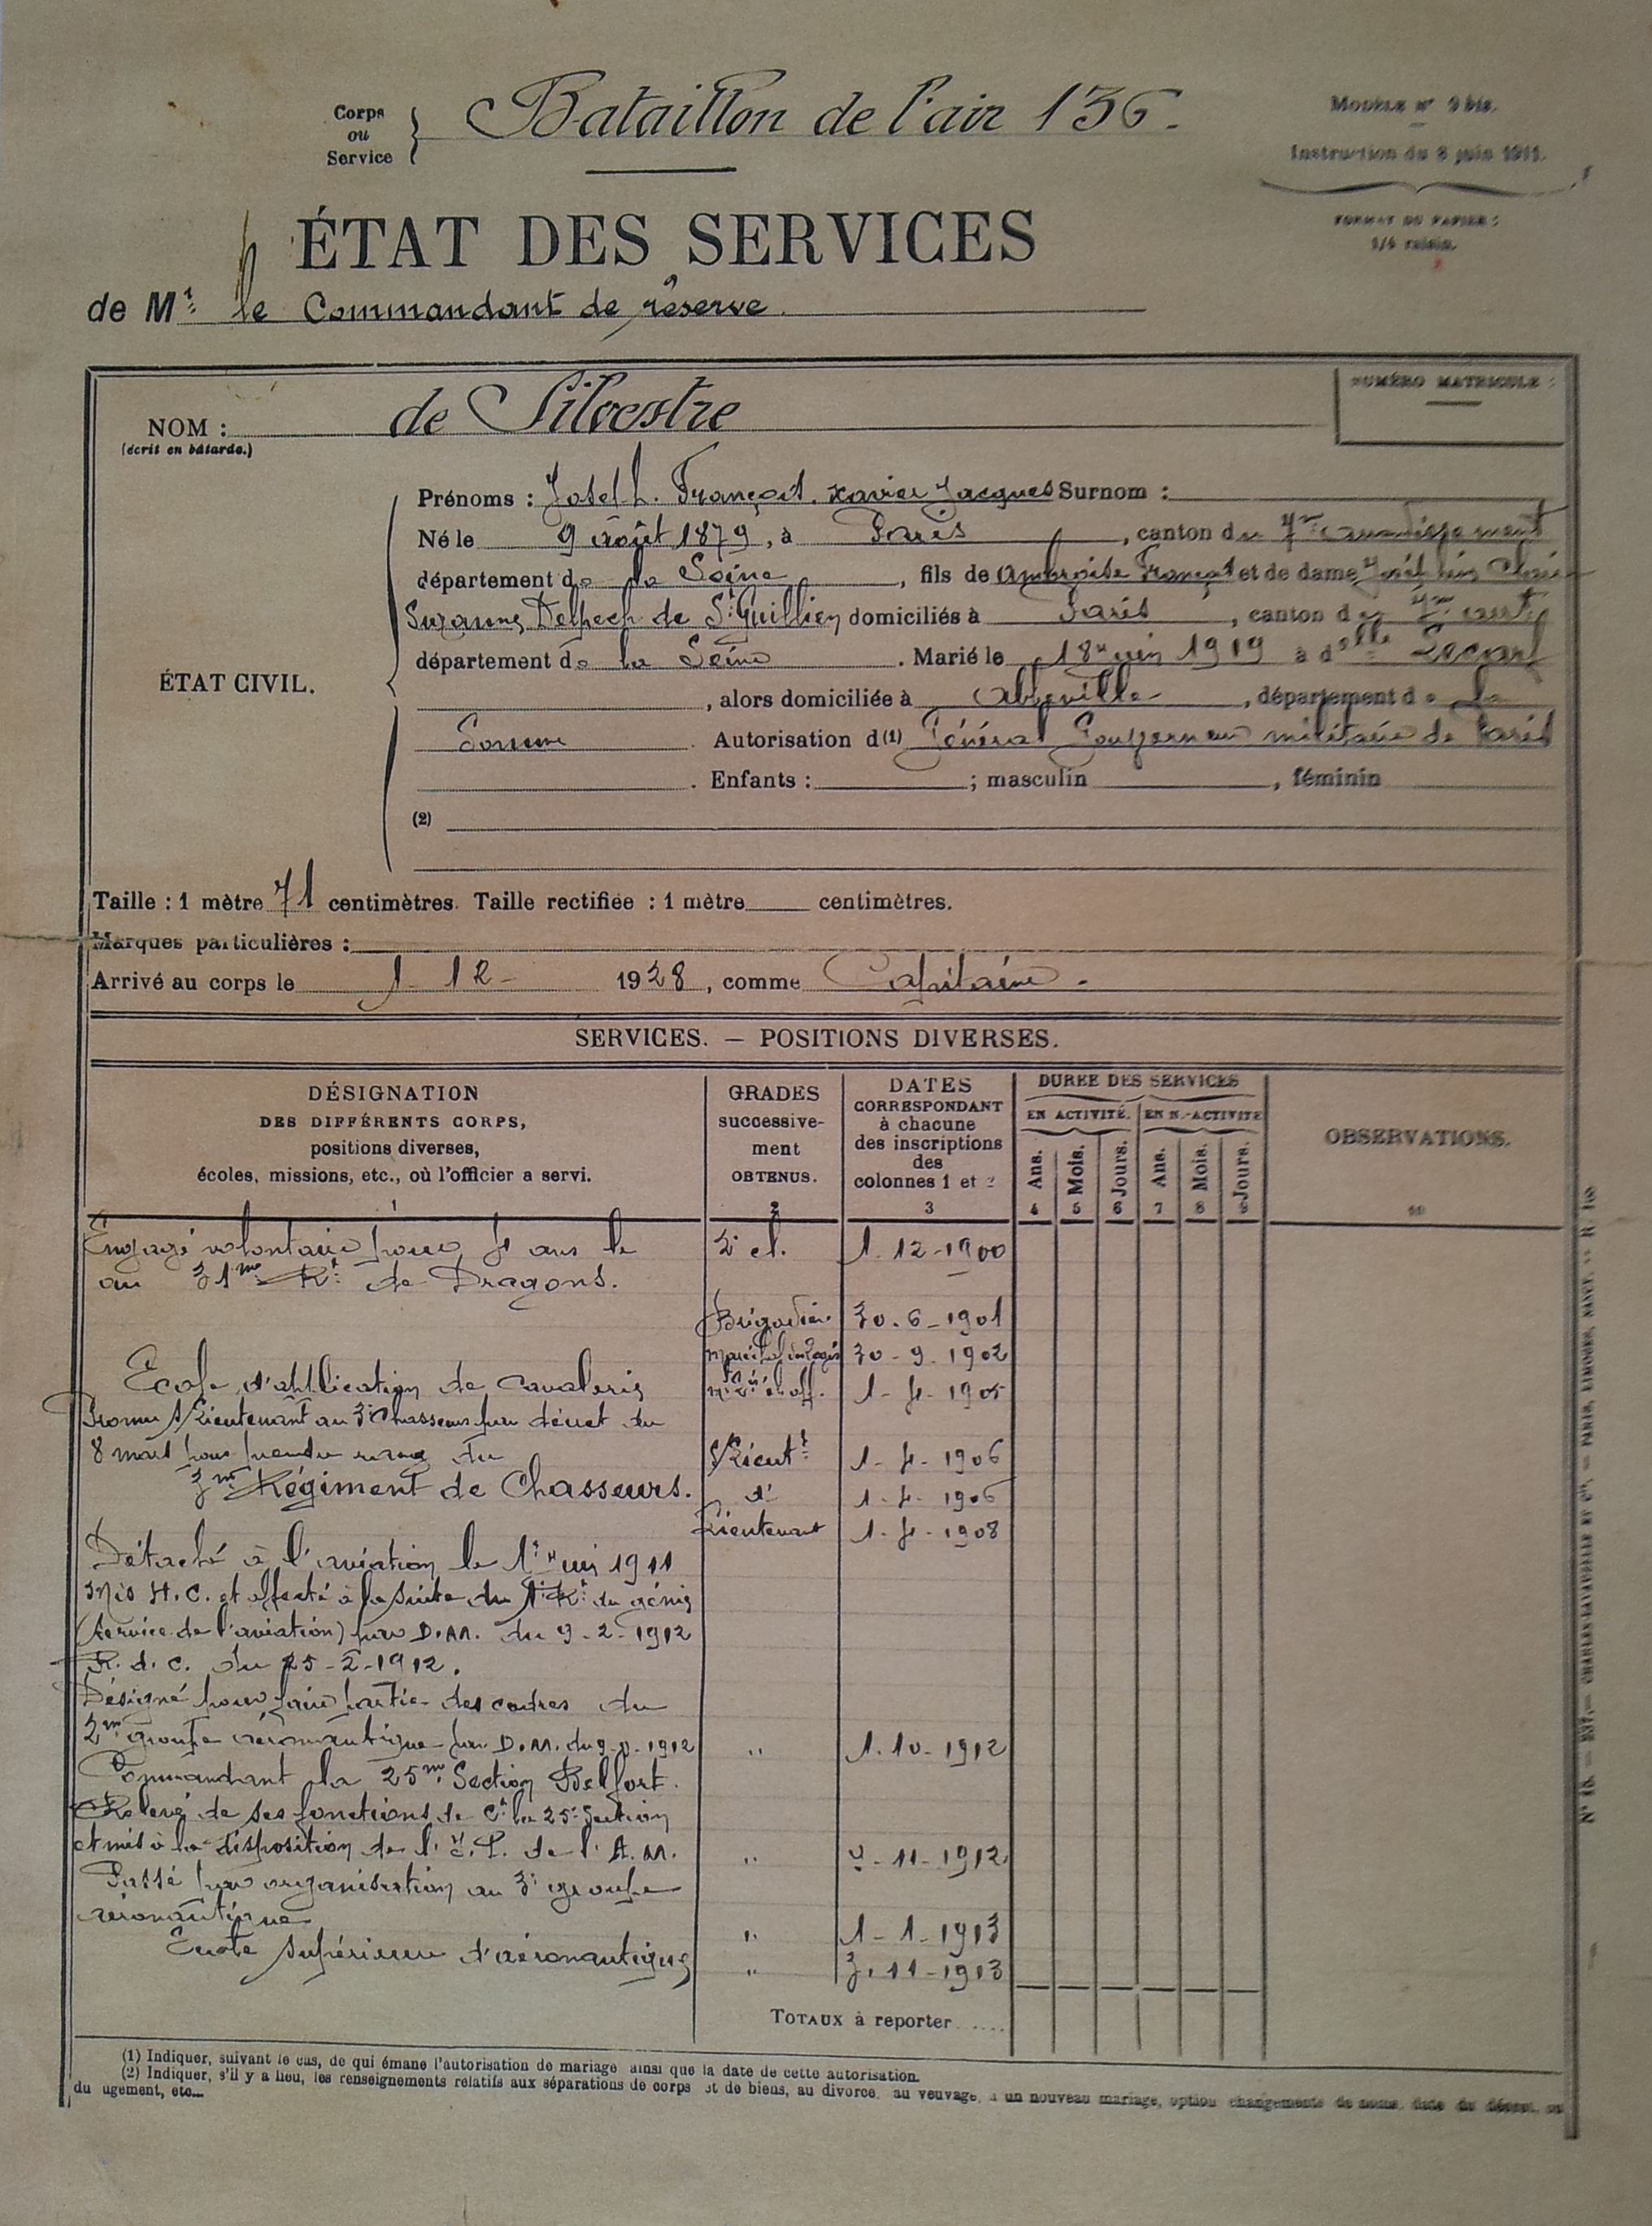 Corps
ou
Service
Bataillon de l'air 136.
Modèle n° 9 bis.
Instruction du 8 juin 1911.
FORMAT DU PAPIER :
1/4 raisin.
ÉTAT DES SERVICES
de Mr. le Commandant de réserve.
NUMÉRO MATRICULE :
NOM : de Silvestre
(écrit en bâtarde.)
Prénoms : Joseph. François. Xavier Jacques Surnom :
Né le 9 août 1879, à Paris, canton du 7me arrondissement
département de la Seine, fils de Ambroise François et de dame
Suzanne Delpech de St Guillien domiciliés à Paris, canton d
département de la Seine. Marié le 18 juin 1919 à dlle
ÉTAT CIVIL.
, alors domiciliée à Abbeville, département de la
Somme. Autorisation d(1) Général Gouverneur militaire de Paris
. Enfants : ; masculin , féminin
(2)
Taille : 1 mètre 71 centimètres. Taille rectifiée : 1 mètre centimètres.
Marques particulières :
Arrivé au corps le 1 - 12 - 1928, comme Capitaine.
SERVICES. — POSITIONS DIVERSES.
DÉSIGNATION
DES DIFFÉRENTS CORPS,
positions diverses,
écoles, missions, etc., où l'officier a servi.
1
GRADES
successive-
ment
OBTENUS.
2
DATES
CORRESPONDANT
à chacune
des inscriptions
des
colonnes 1 et 2
3
DURÉE DES SERVICES
EN ACTIVITÉ. EN N.-ACTIVITÉ
Ans. Mois. Jours. Ans. Mois. Jours.
4 5 6 7 8 9
OBSERVATIONS.
10
Engagé volontaire pour 4 ans le 2e cl. 1-12-1900
au 31me Rt de Dragons.
Brigadier 30-6-1901
Maréchal des Logis 30-9-1902
Ecole d'application de cavalerie 1-4-1905
Promu s/Lieutenant au 3e Chasseurs par décret du
8 mars pour prendre rang du s/Lieutt 1-4-1906
3me Régiment de Chasseurs. d° 1-4-1906
Lieutenant 1-4-1908
Détaché à l'aviation le 1er 1911
Mis H.C. et affecté à la suite du 1er Rt du génie
(Service de l'aviation) par D.M. du 9-2-1912
R.d.C. du 25-2-1912.
Désigné pour faire partie des cadres du
2me groupe aéronautique par D.M. du 1912 " 1-10-1912
Commandant la 25me Section Belfort.
Relevé de ses fonctions de Ct la 25e Section
et mis à la disposition de l' de l'A.M. " 11-1912
Passé par organisation au 3e groupe
aéronautique " 1-1-1913
Ecole supérieure d'aéronautique " 3-11-1913
TOTAUX à reporter .....
(1) Indiquer, suivant le cas, de qui émane l'autorisation de mariage ainsi que la date de cette autorisation.
(2) Indiquer, s'il y a lieu, les renseignements relatifs aux séparations de corps et de biens, au divorce, au veuvage, à un nouveau mariage, option changements de noms, date du décret, ou
du ugement, etc...